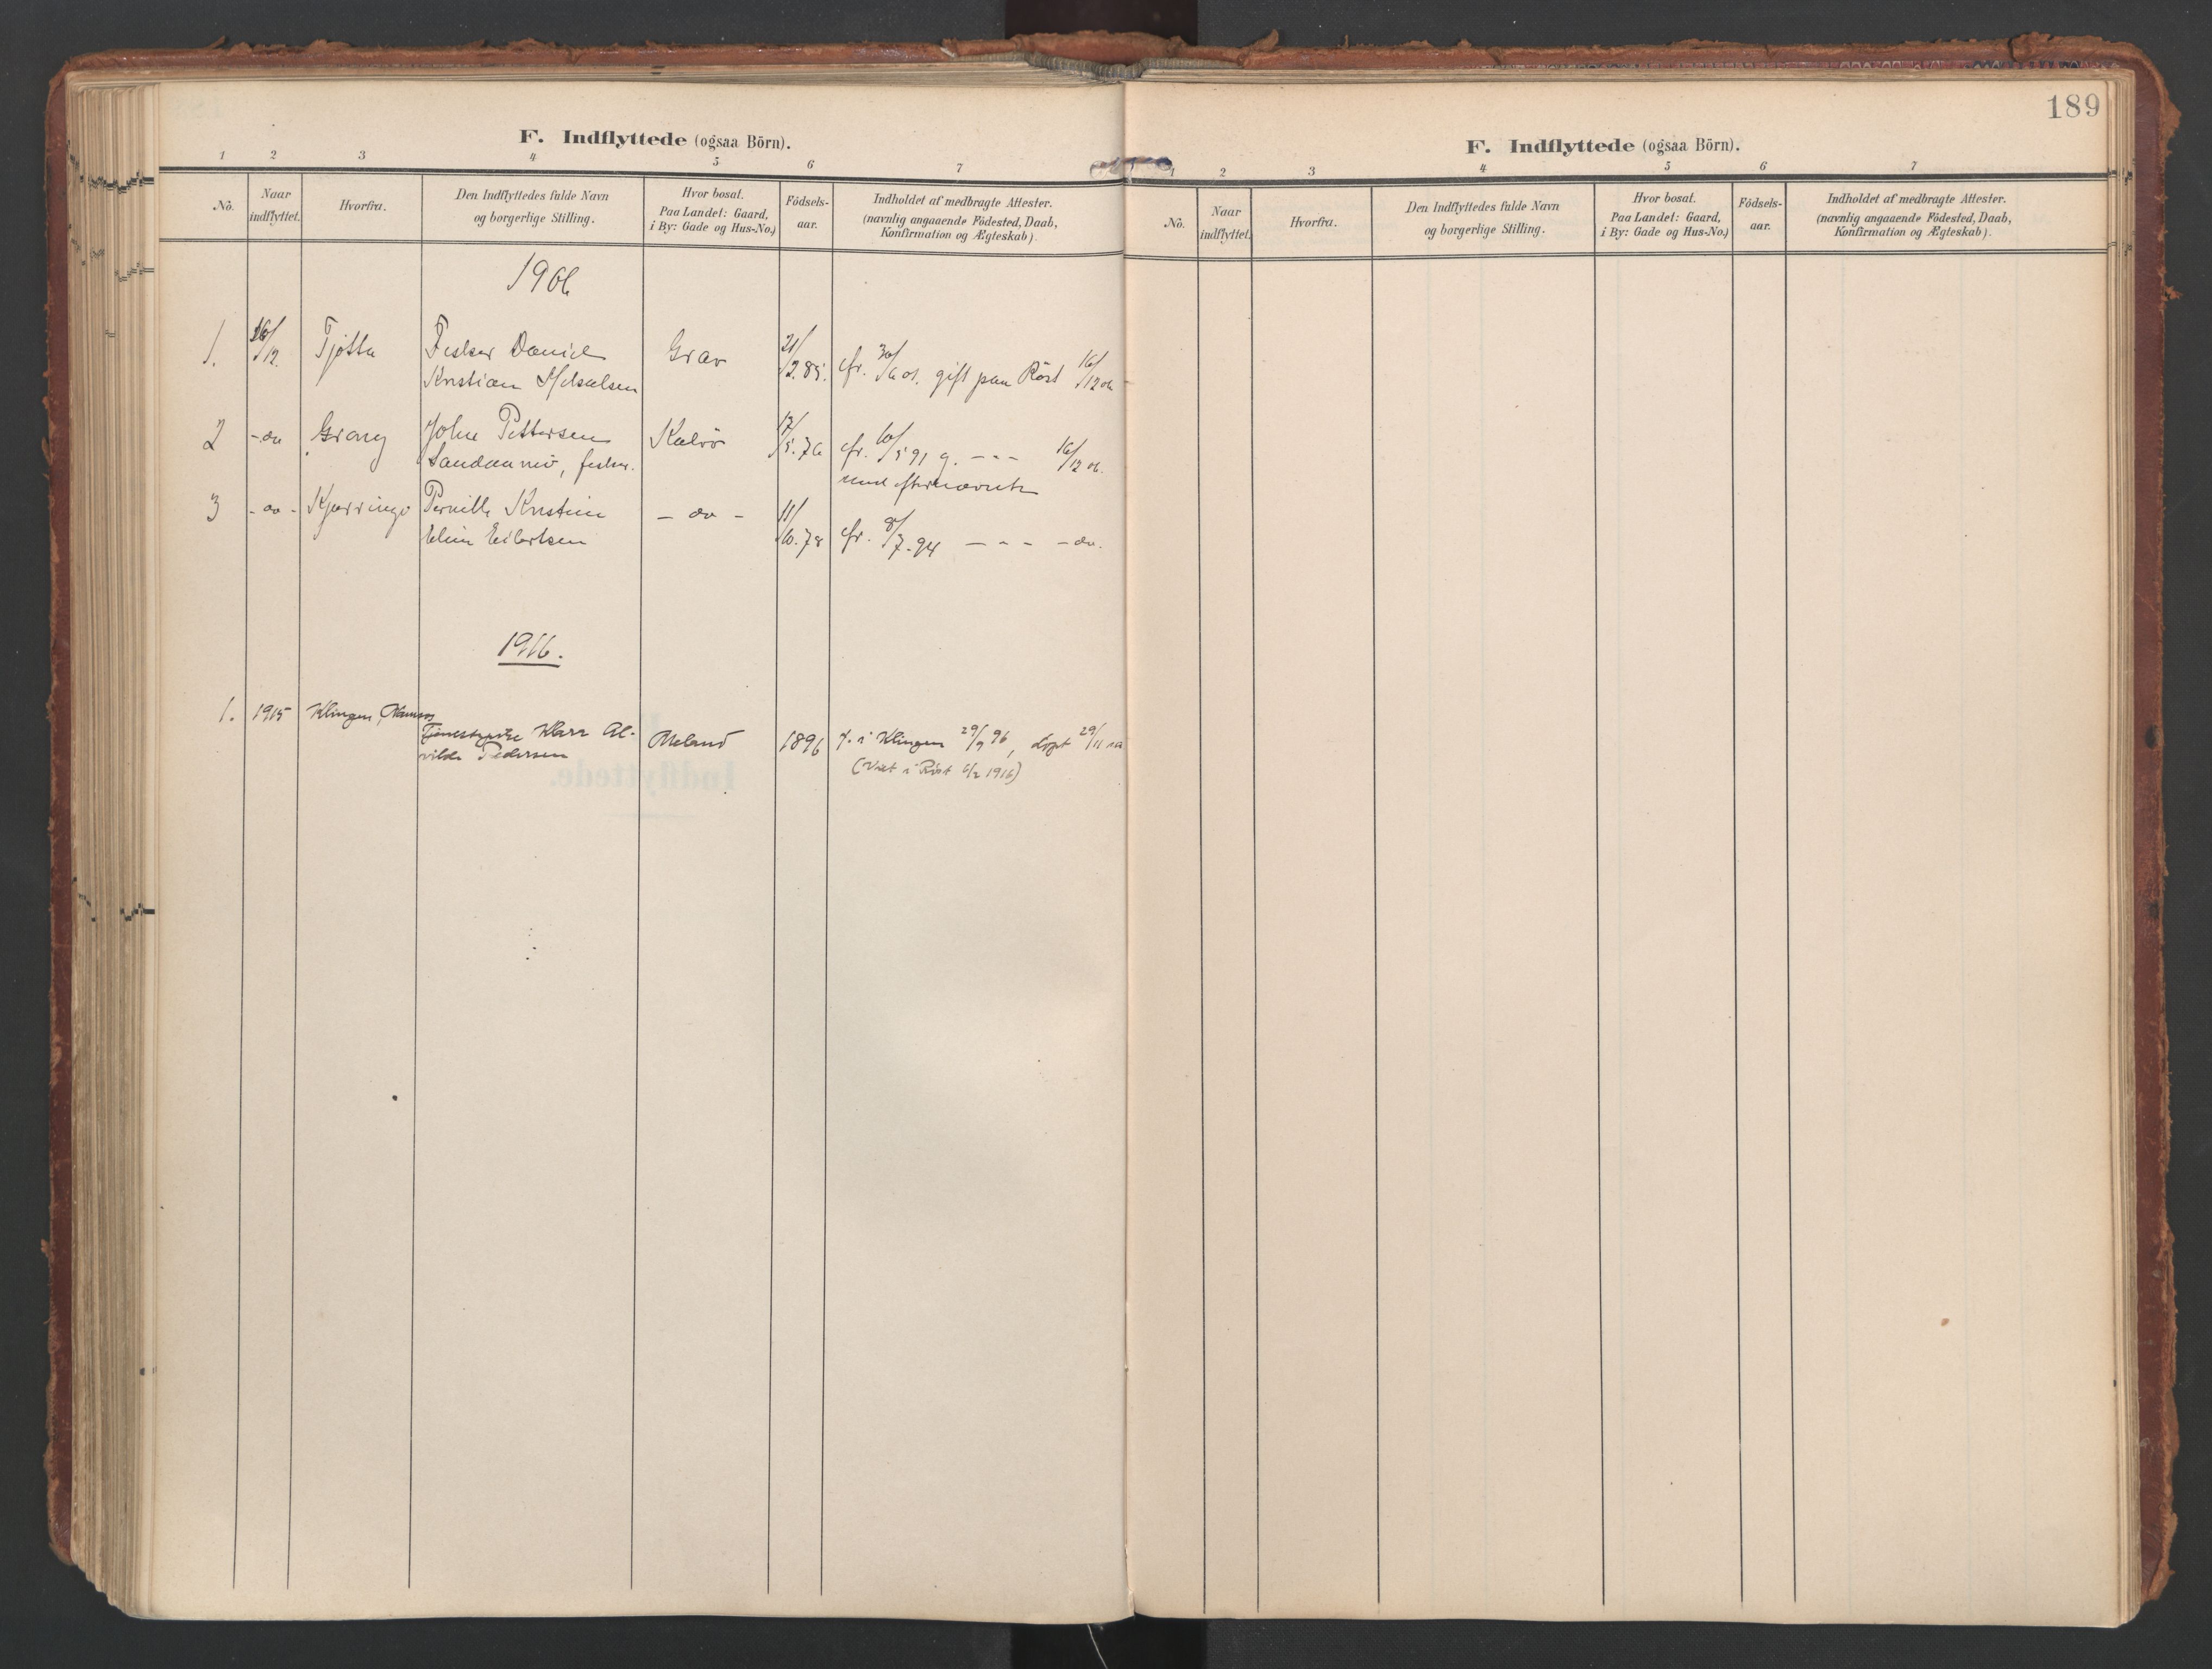 189
F. Indflyttede (ogsaa Börn).
1 2 3 4 5 6 7
No.
Naar indflyttet.
Hvorfra.
Den Indflyttedes fulde Navn
og borgerlige Stilling.
Hvor bosat.
Paa Landet: Gaard,
i By: Gade og Hus-No.)
Födsels-
aar.
Indholdet af medbragte Attester.
(navnlig angaaende Födested, Daab,
Konfirmation og Ægteskab).
1906
1. 16/12. Tjøtta Fisker Daniel Grav 21/2.85. cfr. 30/6 01. gift paa Röst 16/12 06
Kristian
2 - do Grong John Pettersen Kalvö 17/5.76 cfr. 10/5 91 g. - - - 16/12 06.
fisker.
med efternævnte
3 - do - Kjerringö Pernille Kristine - do - 11/10.78 cfr. 8/7.94 - - - - do.
Eline Eilertsen
1916.
1. 1915 Klingen, Namsos
Tjenestepike Klara Al- 1896 f. i Klingen 29/9 96, døpt 29/11 s.a.
vilde Pedersen
(Viet i Röst 6/2 1916)
F. Indflyttede (ogsaa Börn).
1 2 3 4 5 6 7
No.
Naar
indflyttet.
Hvorfra.
Den Indflyttedes fulde Navn
og borgerlige Stilling.
Hvor bosat.
Paa Landet: Gaard,
i By: Gade og Hus-No.)
Födsels-
aar.
Indholdet af medbragte Attester.
(navnlig angaaende Födested, Daab,
Konfirmation og Ægteskab).